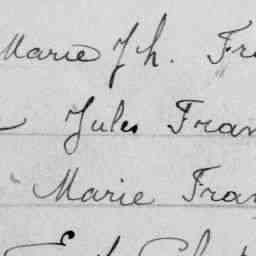 Marie Jh. Fr
Jules Fran
Marie Fran